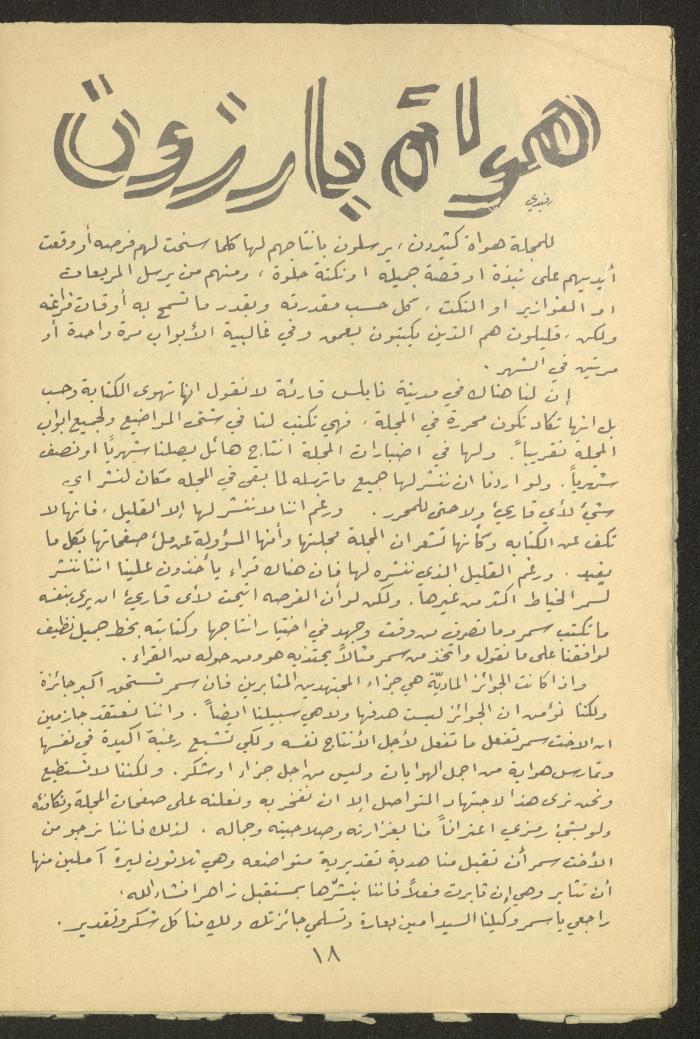 هواة بارزون
رفيدي
للمجلة هواة كثيرون، يرسلون بانتاجهم لها كلما سنحت لهم فرصه أو وقعت
أيديهم على نبذة او قصة جميله او نكتة حلوة، ومنهم من يرسل المربعات
او الفوازير او النكت، كل حسب مقدرته وبقدر ما تسمح به أوقات فراغه
ولكن، قليلون هم الذين يكتبون بعمق وفي غالبية الأبواب مرة واحدة أو
مرتين في الشهر.
إن لنا هناك في مدينة نابلس قارئة لا نقول انها تهوى الكتابة وحسب
بل انها تكاد تكون محررة في المجلة، فهي تكتب لنا في شتى المواضيع ولجميع ابواب
المجلة تقريباً. ولها في اضبارات المجلة انتاج هائل يصلنا شهرياً او نصف
شهرياً. ولو اردنا ان ننشر لها جميع ما ترسله لما بقي في المجله مكان لنشر اي
شئ لأي قارئ ولا حتى للمحرر. ورغم اننا لا ننشر لها إلا القليل، فانها لا
تكف عن الكتابه وكأنها تشعر ان المجلة مجلتها وأنها المسؤولة عن ملئ صفحاتها بكل ما
يفيد. ورغم القليل الذي ننشره لها فان هناك قراء يأخذون علينا اننا ننشر
لسمر الخياط اكثر من غيرها. ولكن لو أن الفرصه اتيحت لأي قارئ ان يرى بنفسه
ما تكتب سمر وما تصرف من وقت وجهد في اختيار انتاجها وكتابته بخط جميل نظيف
لوافقنا على ما نقول واتخذ من سمر مثالاً يحتذيه هو ومن حوله من القراء.
واذا كانت الجوائز الماديّة هي جزاء المجتهدين المثابرين فان سمر تستحق اكبر جائزة
ولكنا نؤمن ان الجوائز ليست هدفها ولا هي سبيلنا ايضاً. واننا نعتقد جازمين
ان الاخت سمر تفعل ما تفعل لأجل الأنتاج نفسه ولكي تشبع رغبة اكيدة في نفسها
وتمارس هواية من اجمل الهوايات وليس من اجل جزاء او شكر. ولكننا لا نستطيع
ونحن نرى هذا الاجتهاد المتواصل إلا ان نفخر به ونعلنه على صفحات المجلة ونكافئه
ولو بشئ رمزي اعترافاً منا بغزارته وصلاحيته وجماله. لذلك فاننا نرجو من
الأخت سمر أن تقبل منا هدية تقديرية متواضعه وهي ثلاثون ليرة آملين منها
أن تثابر وهي إن ثابرت فعلاً فاننا نبشّرها بمستقبل زاهر انشاء الله.
راجعي يا سمر وكيلنا السيد امين بعارة وتسلمي جائزتك ولك منا كل شكر وتقدير.
١٨